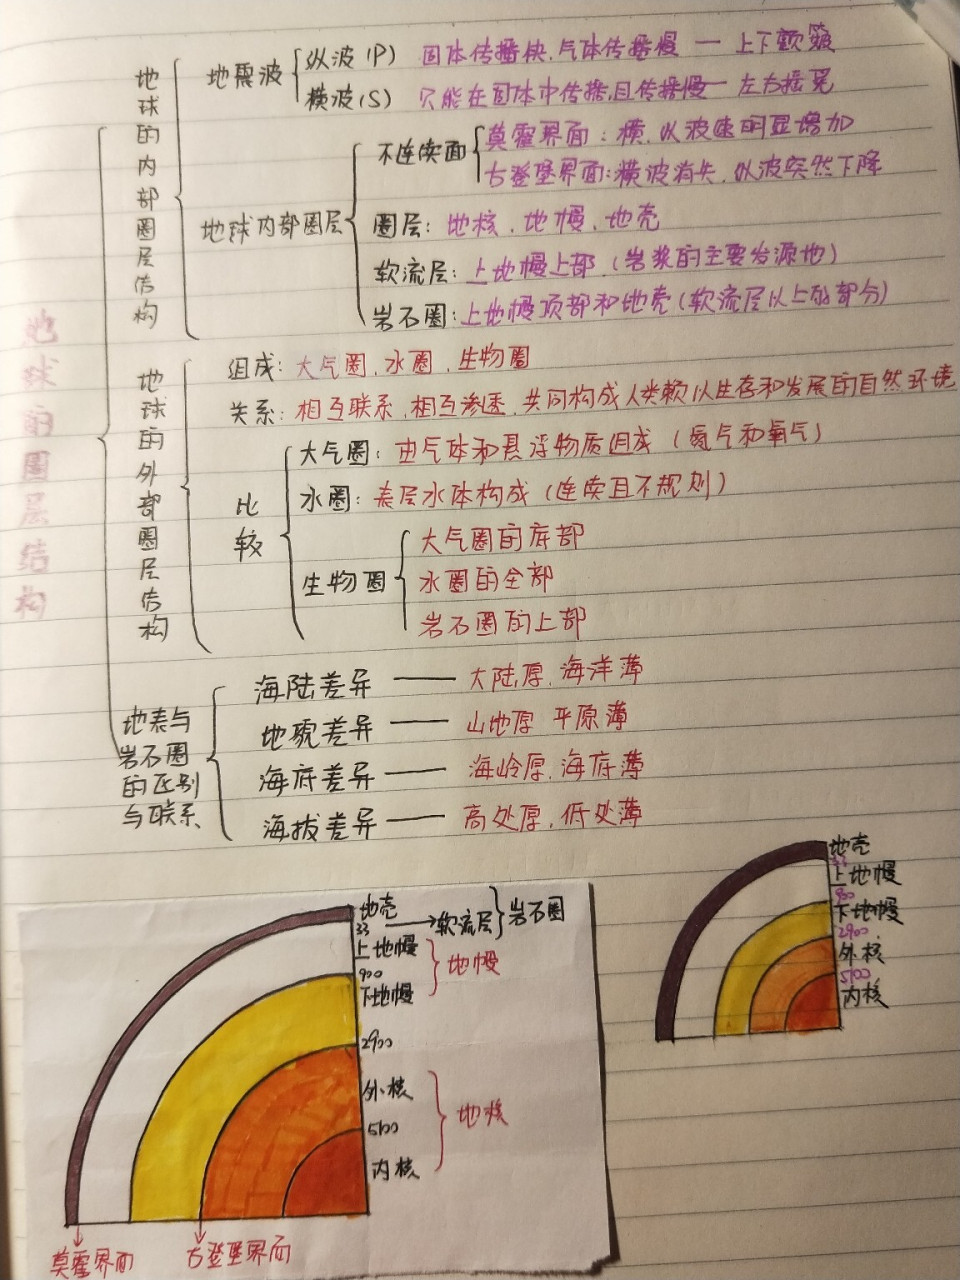 地球的圈层结构
地球的内部圈层结构
地震波
纵波(P) 固体传播快,气体传播慢 — 上下颠簸
横波(S) 只能在固体中传播,且传播慢 — 左右摇晃
地球内部圈层
不连续面
莫霍界面:横,纵波速明显增加
古登堡界面:横波消失,纵波突然下降
圈层:地核、地幔、地壳
软流层:上地幔上部(岩浆的主要发源地)
岩石圈:上地幔顶部和地壳(软流层以上的部分)
地球的外部圈层结构
组成:大气圈,水圈,生物圈
关系:相互联系,相互渗透,共同构成人类赖以生存和发展的自然环境
比较
大气圈:由气体和悬浮物质组成(氮气和氧气)
水圈:表层水体构成(连续且不规则)
生物圈
大气圈的底部
水圈的全部
岩石圈的上部
地表与
岩石圈
的区别
与联系
海陆差异 — 大陆厚,海洋薄
地貌差异 — 山地厚 平原薄
海底差异 — 海岭厚,海底薄
海拔差异 — 高处厚,低处薄
地壳
33
上地幔
900
下地幔
2900
外核
5100
内核
地壳
33 → 软流层 岩石圈
上地幔
900
下地幔
地幔
2900
外核
5100
内核
地核
莫霍界面
古登堡界面